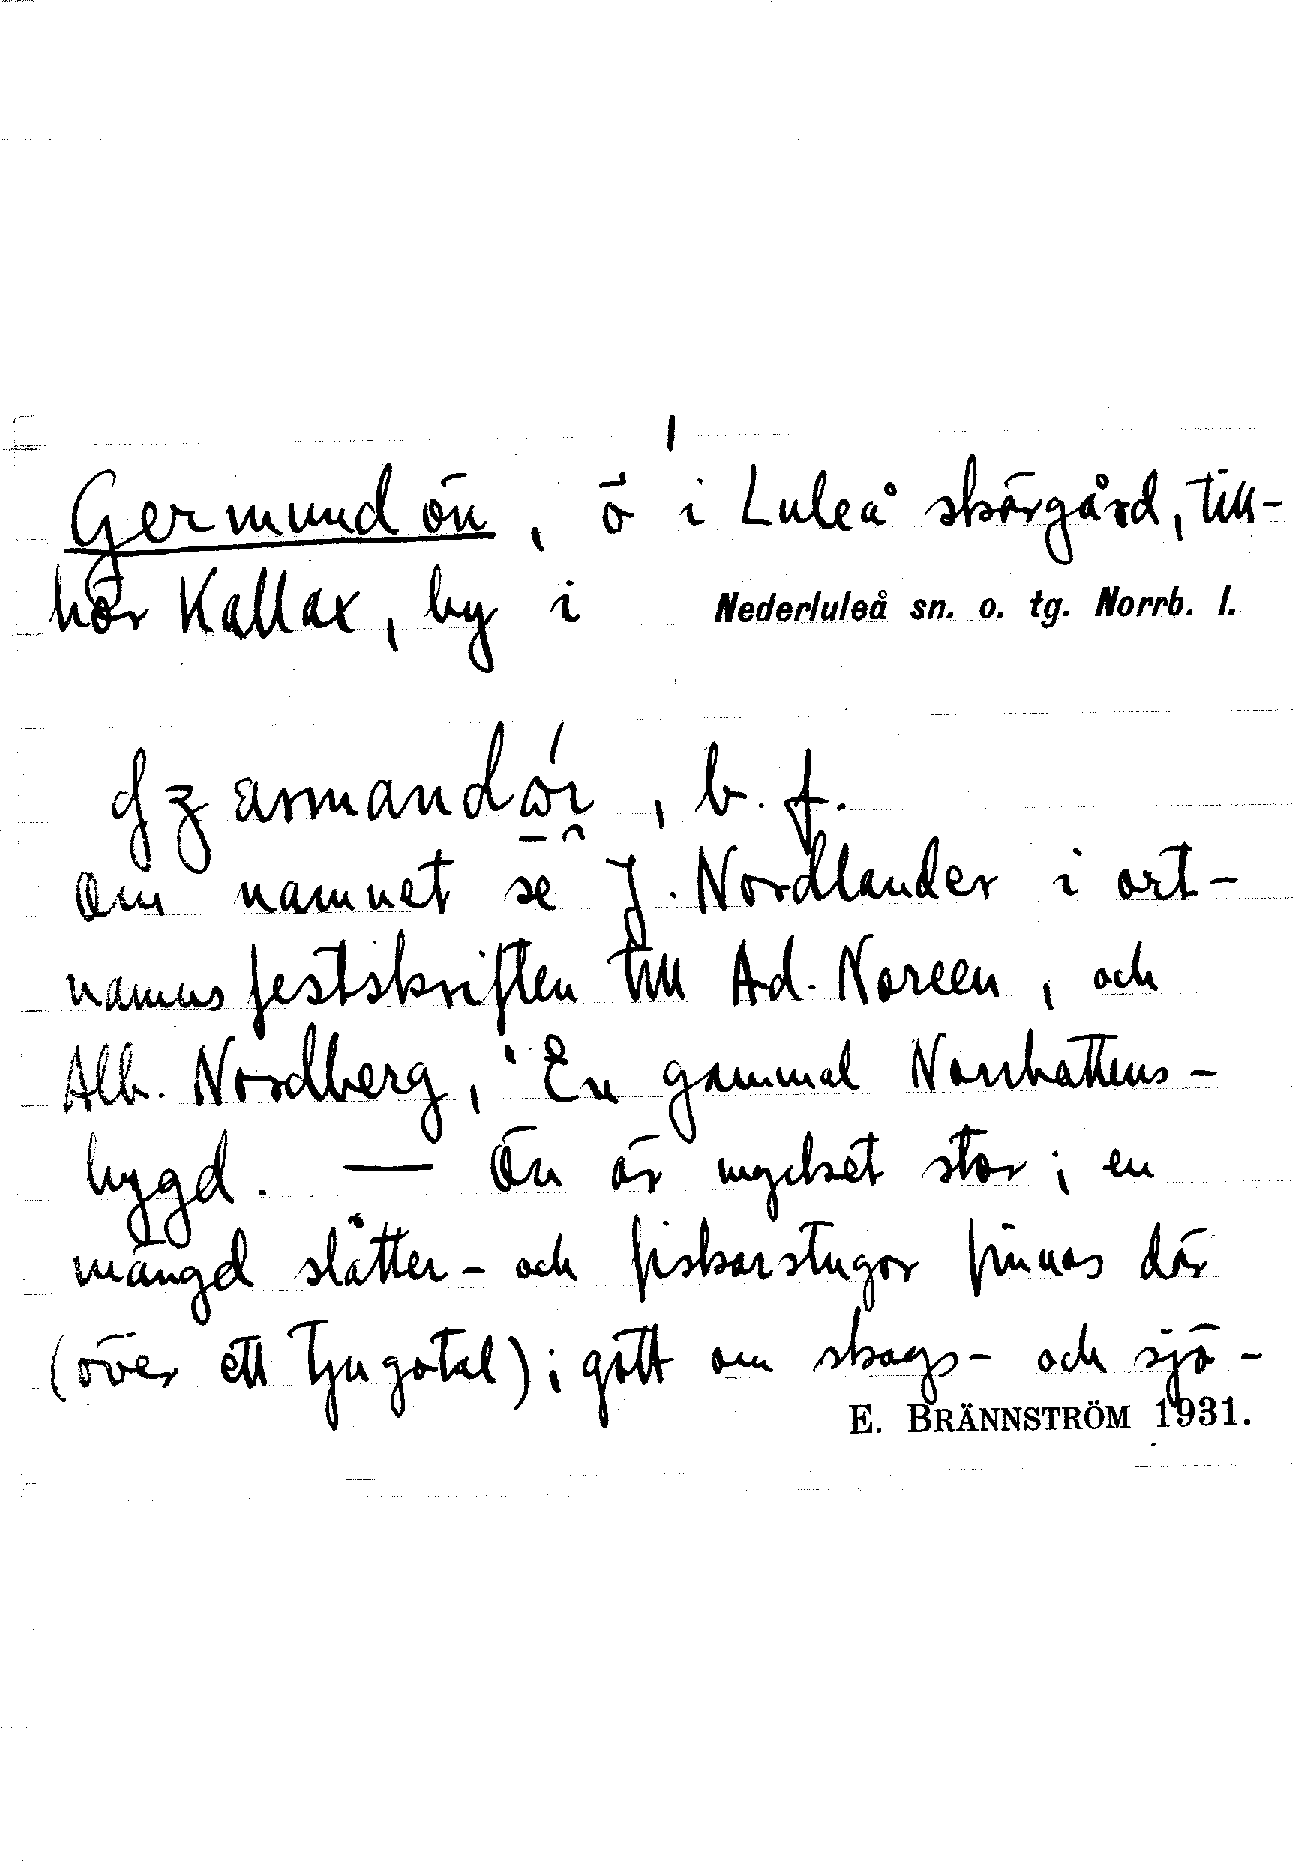 1
Germundön, ö i Luleå skärgård, till-
hör Kallax, by i Nederluleå sn. o. tg. Norrb. l.
, b. f.
Om namnet se J. Nordlander i ort-
namnsfestskriften till Ad. Noreen, och
Alb. Nordberg, "En gammal Norrbottens-
bygd. — Ön är mycket stor; en
mängd slåtter- och fiskarstugor finnas där
(över ett tjugotal); gott om skogs- och sjö-
E. BRÄNNSTRÖM 1931.